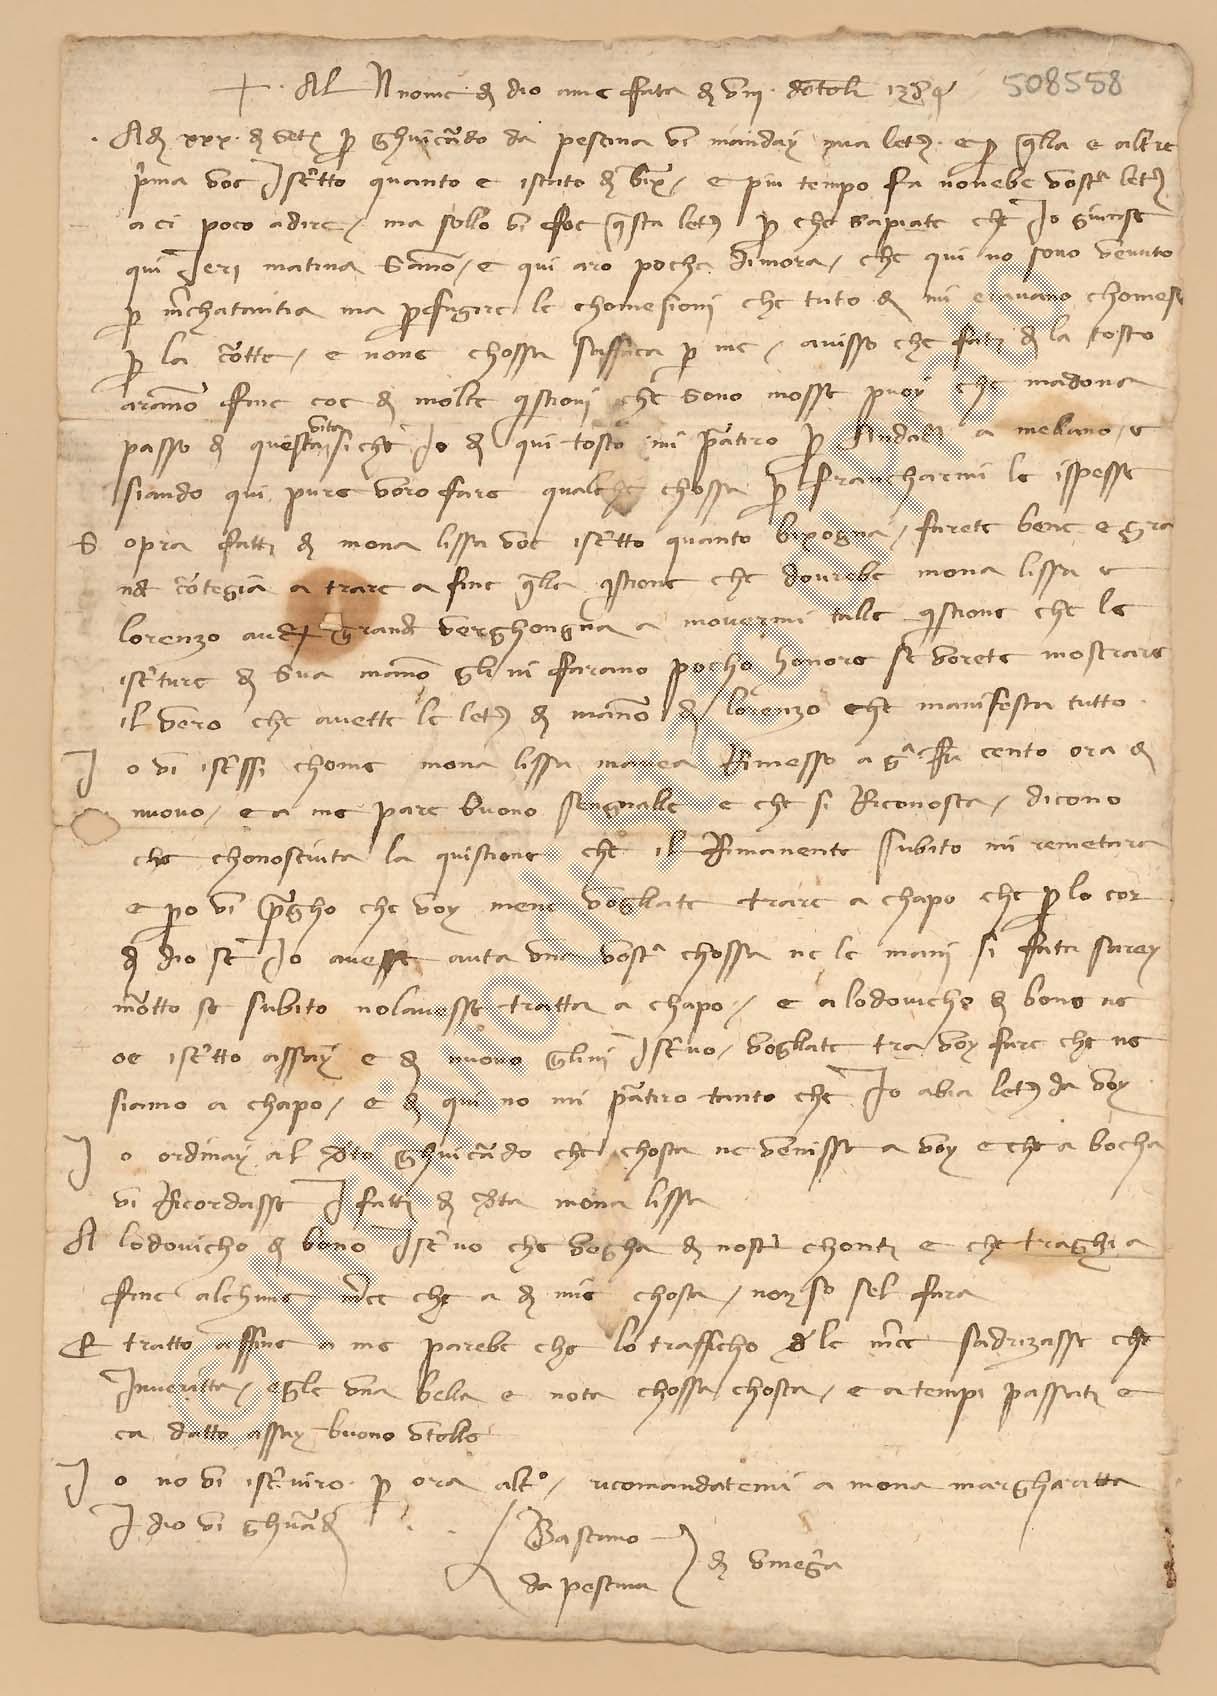 + Al nome di dio ame fata di viii d'otobr 1384
508558
Adi xxx di Setr per ghuicardo da pescina vi manday mia letr e per quela e altre
prima voe Iscritto quanto e istato di bixo / e piu tempo fa nonebe vostra letr
a ci poco a dire / ma sollo vi foe questa letr per che sapiate che Io giunse
qui Ieri matina sano / e qui aro pocha dimora / che qui no sono venuto
per merchatantia ma per fugire le chomesioni che tuto di mi erano chomese
per la corte / e none chossa per me / aviso che fati di la tosto
arano fine coe di molte quistioni che sono mosse puoy che madona
passo di questa vita si che Io di qui tosto mi partiro per Andare a melano / e
siando qui pure voro fare qualche chossa per francharmi le ispesse
Sopra fatti di mona lissa voe iscritto quanto bixogna / farete bene e gra
nd cortegia a trare a fine quela quistione che dovrebe mona lissa e
lorenzo aver grand verghongna a movermi talle quistione che le
iscriture di sua mano gli ni farano pocho honore se vorete mostrare
il vero che avette le letr di mano di lorenzo che manifesta tutto
Io vi iscrissi chome mona lissa mavea Rimesso a ga fr cento ora di
nuovo / e a me pare buono sengnalle e che si Riconosca / dicono
che chonosciuta la quistione che il Rimanente subito mi remetara
e pero vi pregho che voy mene vogliate trare a chapo che per lo cor
di dio se Io avesse auta una vostra chossa ne le mani si fata sarey
morto se subito nolavesse tratta a chapo / e a lodovicho di bono ne
oe iscritto assay e di nuovo glini Iscrivo / vogliate tra voy fare che ne
siamo a chapo / e di qui no mi partiro tanto che Io abia letr da voy
Io ordinay al deto ghuicardo che chosta ne venisse a voy e che a bocha
vi Ricordasse I fatti di deta mona lissa
A lodovicho di bono Iscrivo che vegha di nostri chonti e che traghi a
fine alchune merce che a di mie chosta / non so sel fara
E tratto affine a me parebe che lo trafficho di le merce sadrizasse che
Inveritta / eglie una bela e nota chossa chosta / e a tempi passati e
ca datto assay buono utolle
Io no vi iscriviro per ora altro / ricomandatemi a mona margharitta
I dio vi ghuardi
Bascano
da pescina
di vinegia